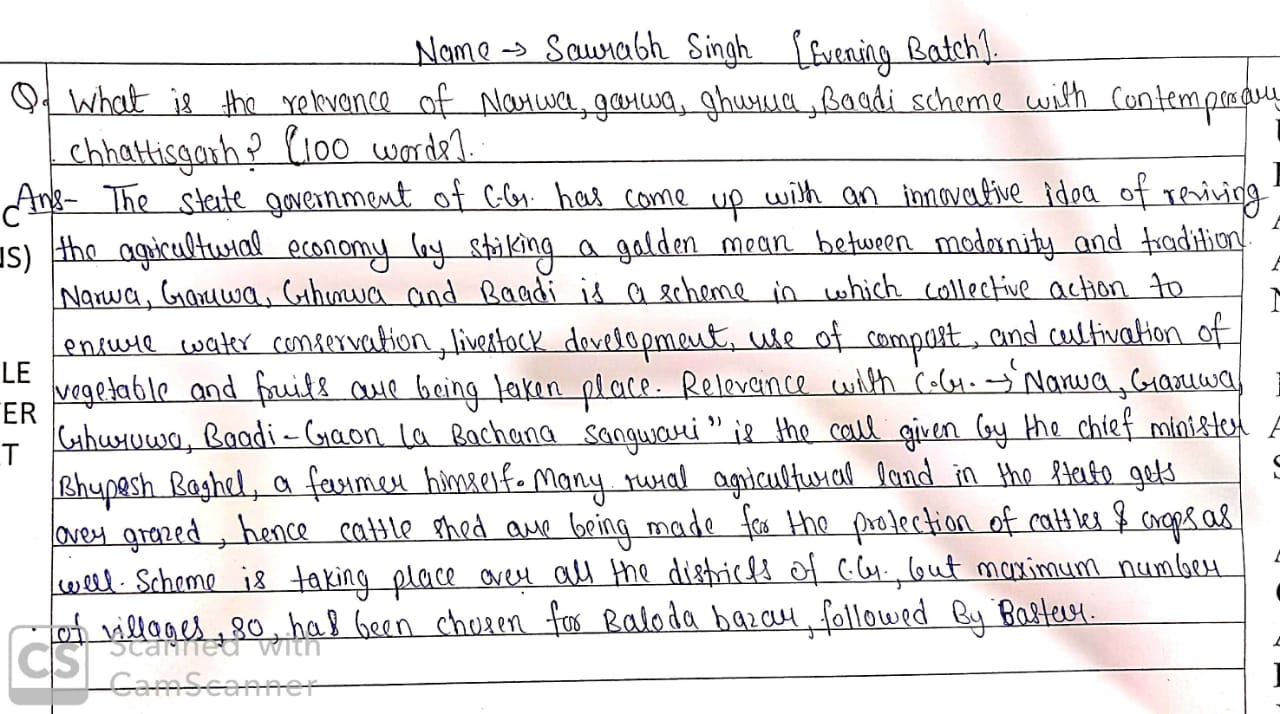 Name → Saurabh Singh [Evening Batch].
Q. What is the relevance of Narwa, garwa, ghurua, Baadi scheme with contemporary
chhattisgarh? [100 words].
Ans- The state government of C.G. has come up with an innovative idea of reviving
C
the agricultural economy by striking a golden mean between modernity and tradition.
IS)
Narwa, Garuwa, Ghurwa and Baadi is a scheme in which collective action to
ensure water conservation, livestock development, use of compost, and cultivation of
LE
vegetable and fruits are being taken place. Relevance with C.G. → ‘Narwa, Garuwa,
ER
Ghuruwa, Baadi - Gaon la Bachana Sangwari” is the call given by the chief minister
T
Bhupesh Baghel, a farmer himself. Many rural agricultural land in the state gets
over grazed, hence cattle shed are being made for the protection of cattles & crops as
well. Scheme is taking place over all the districts of C.G., but maximum number
of villages, 80, has been chosen for Baloda bazar, followed By Bastar.
CS Scanned with
CamScanner